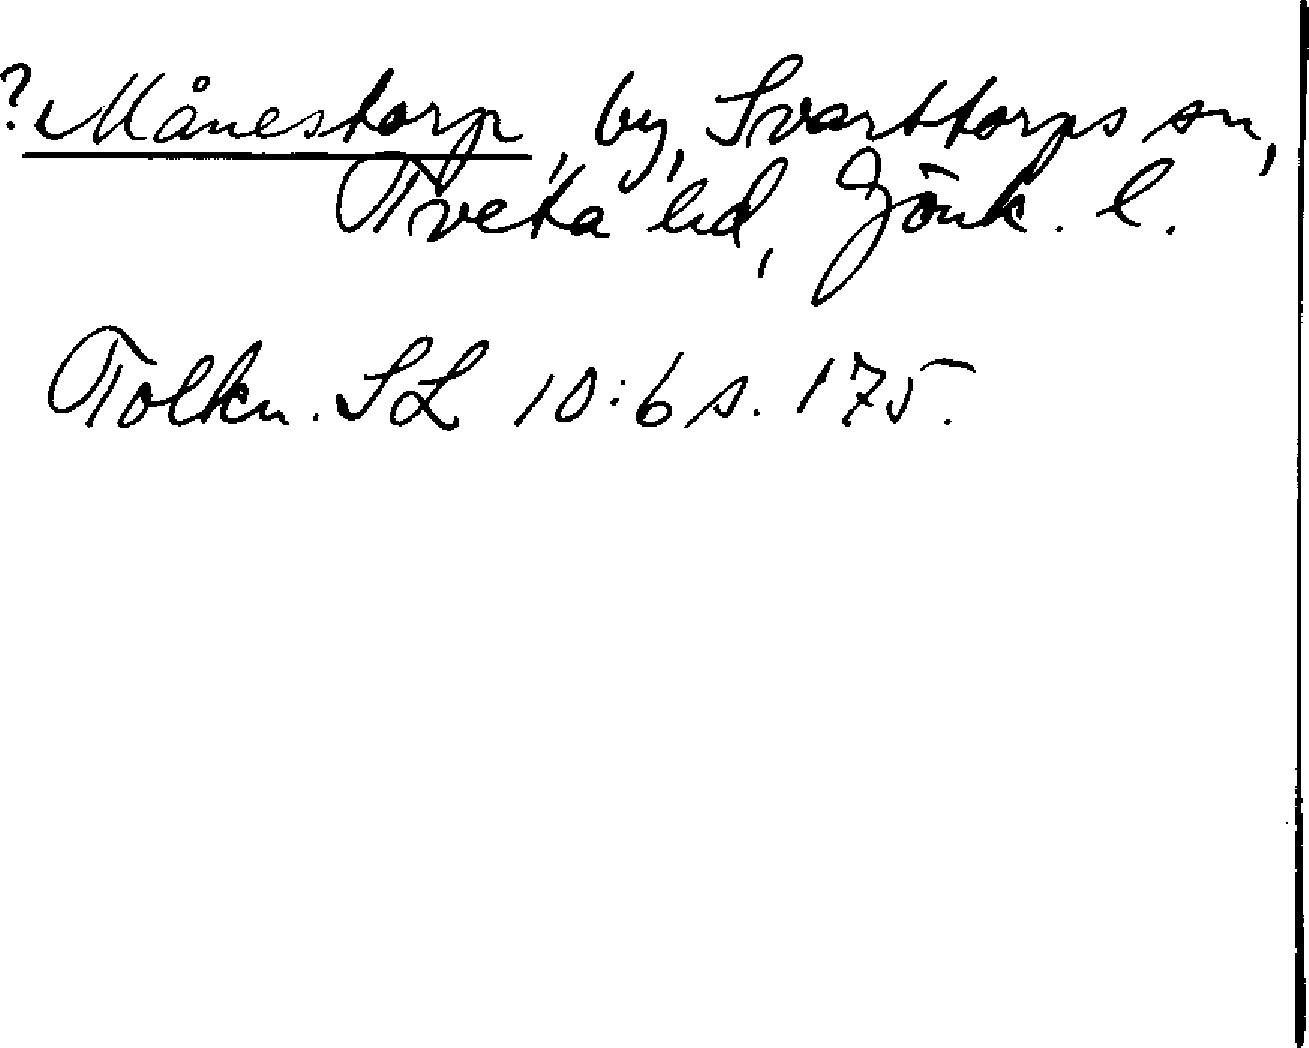 ? Månestorp, by, Svarttorps sn,
Tveta hd, Jönk. l.
Tolkn. SL 10:6 s. 175.